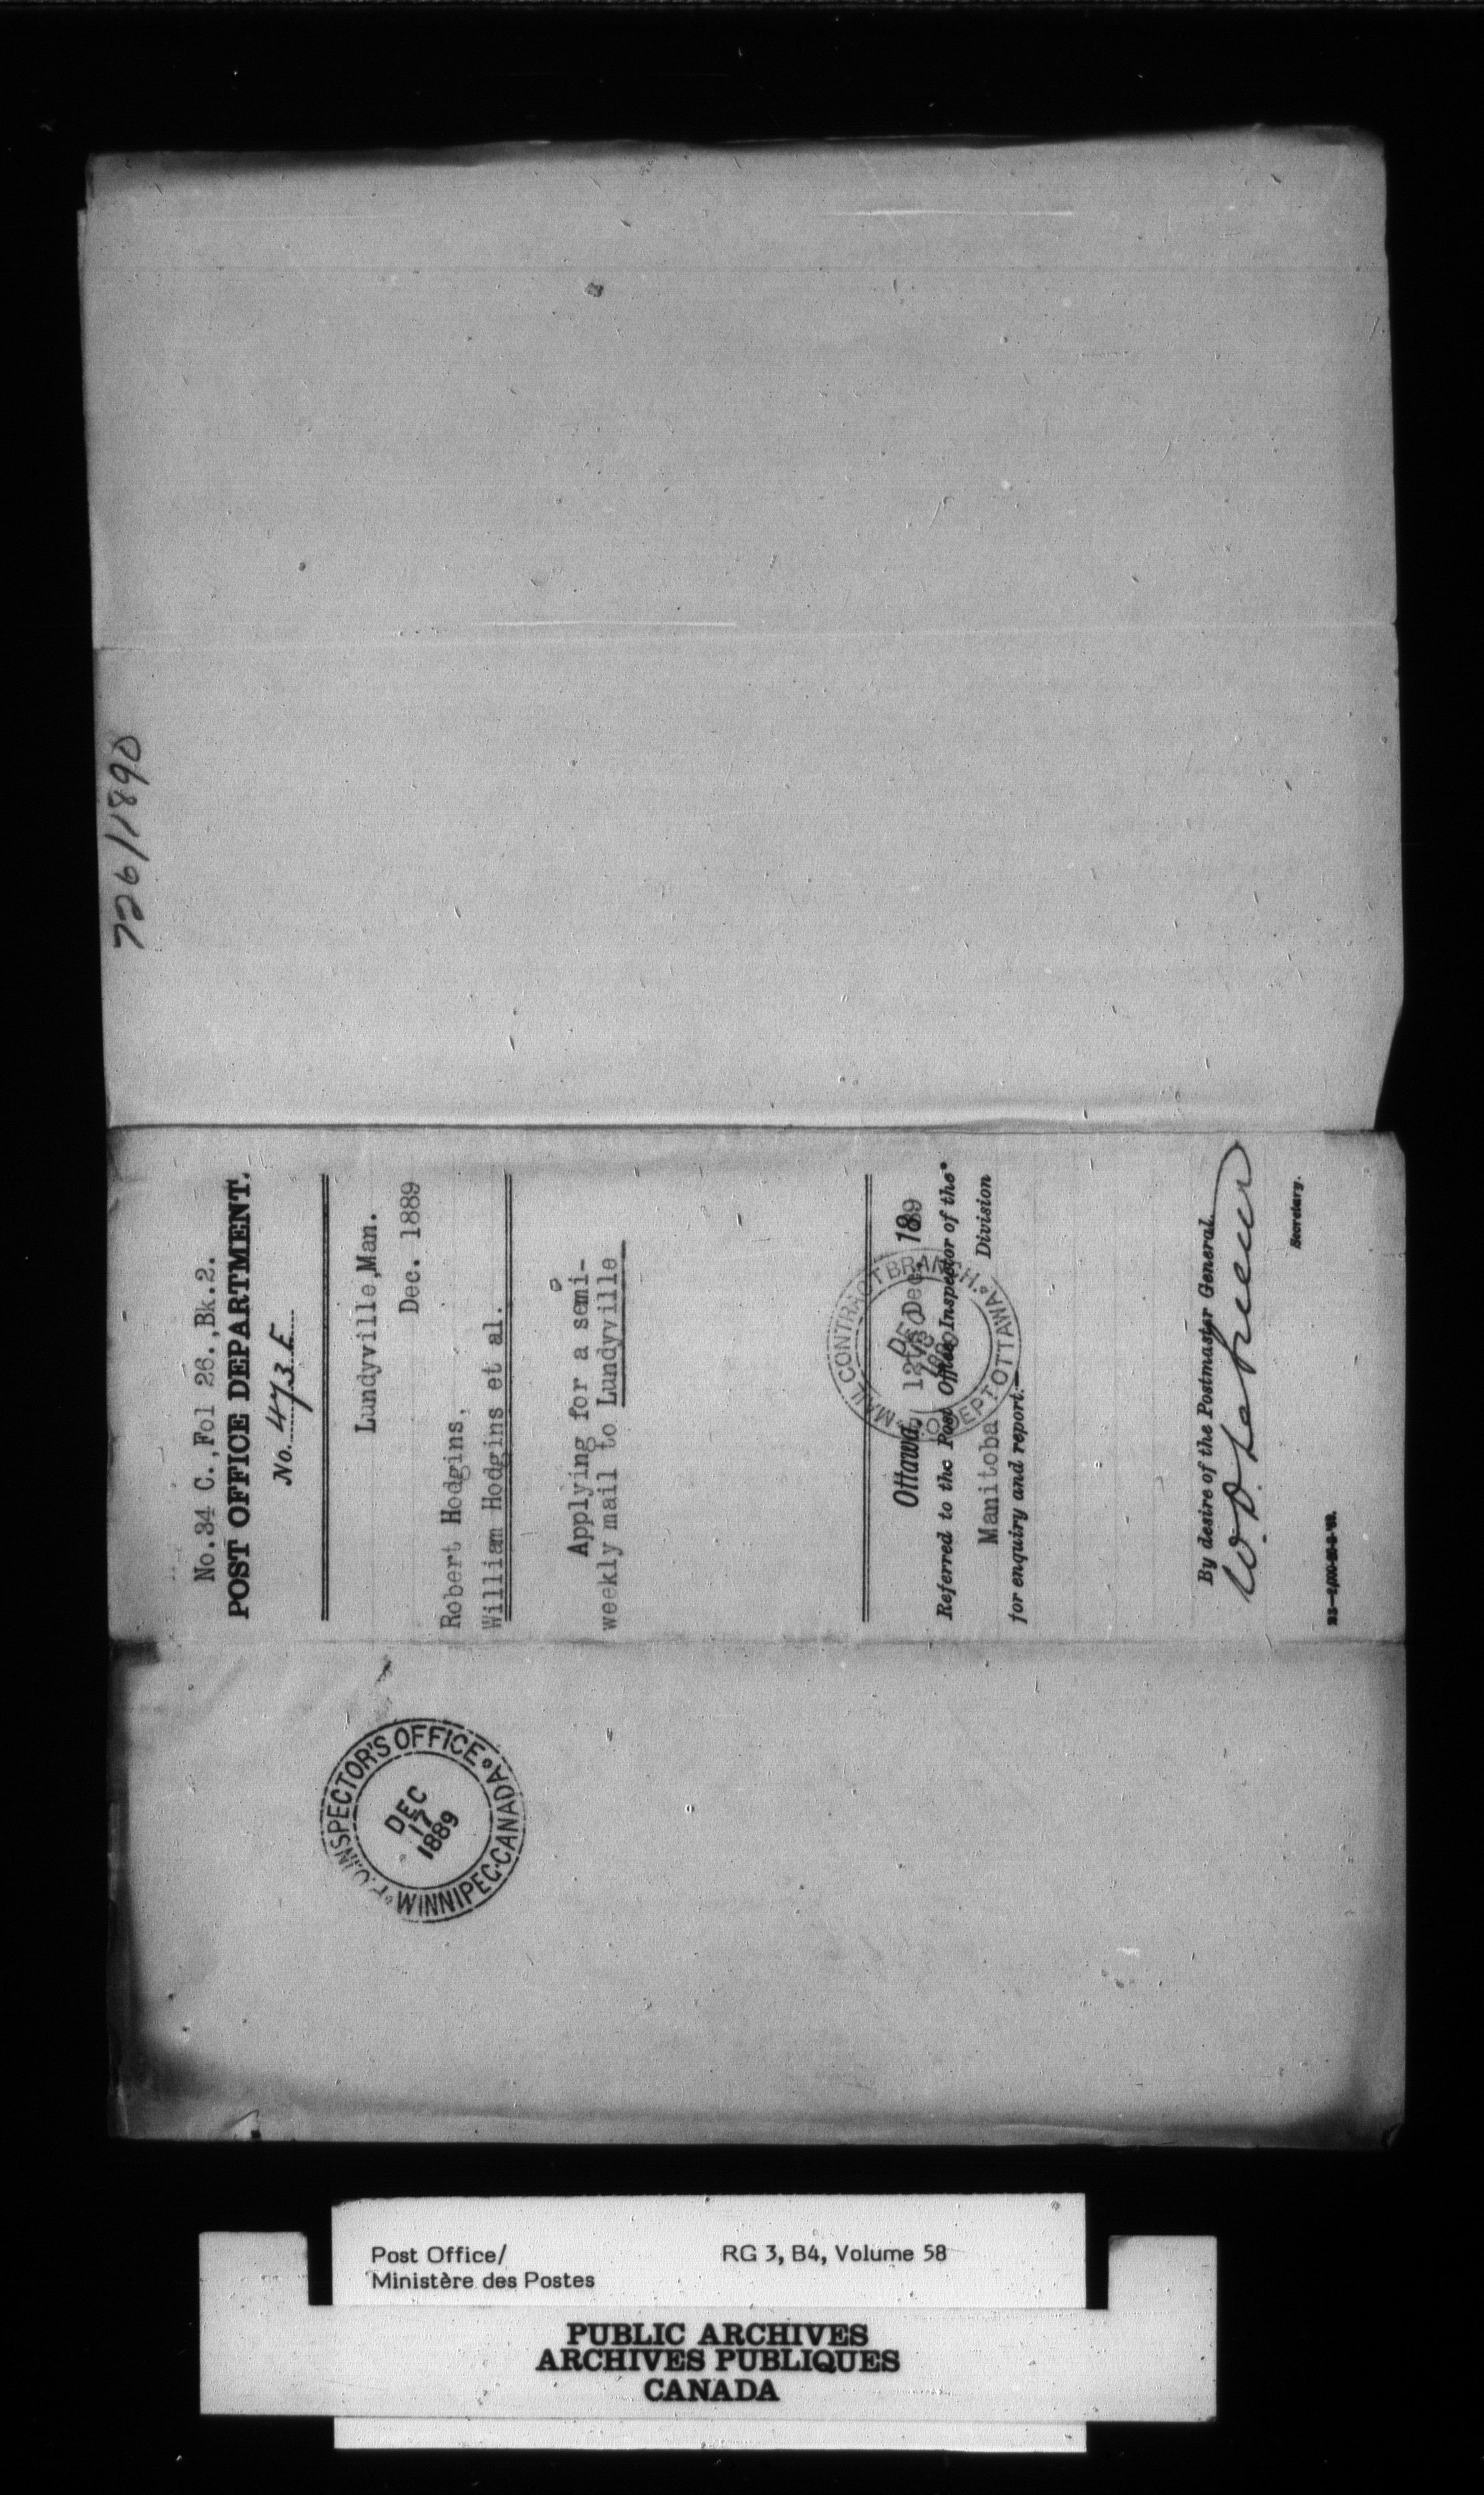 726/1890
No.34 C.,Fol 26.,Bk.2.
POST OFFICE DEPARTMENT.
No. 473 E
Lundyville,Man.
Dec. 1889
Robert Hodgins,
William Hodgins et al.
Applying for a semi-
weekly mail to Lundyville
MAIL CONTRACT BRANCH.
P.O. DEPT OTTAWA
DEC
1889
Ottawa, 12th Dec. 1889
Referred to the Post Office Inspector of the
Manitoba Division
for enquiry and report.—
By desire of the Postmaster General.
W. D. LeSueur
Secretary.
P.O. INSPECTOR'S OFFICE
WINNIPEG.CANADA
DEC
17
1889
Post Office/ RG 3, B4, Volume 58
Ministère des Postes
PUBLIC ARCHIVES
ARCHIVES PUBLIQUES
CANADA